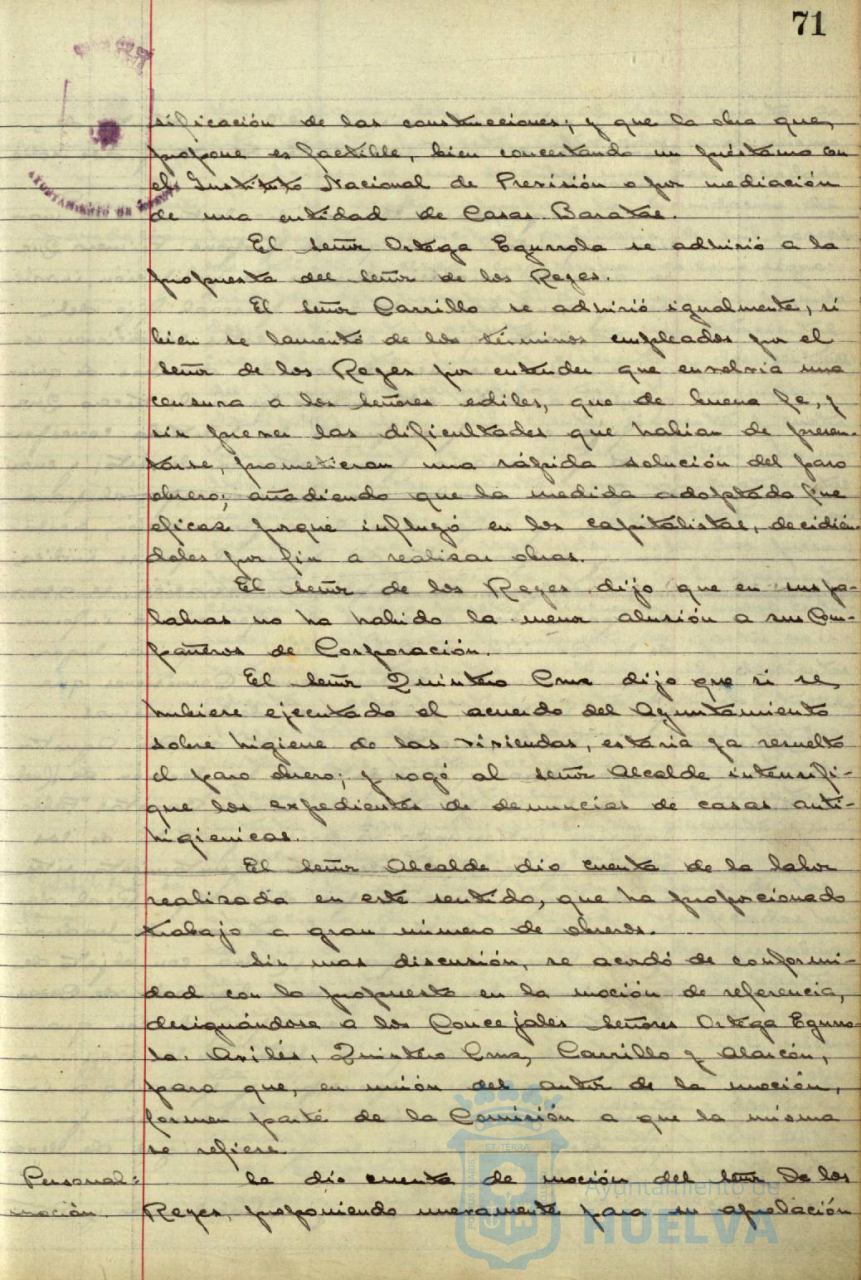 71
AYUNTAMIENTO DE
sificación de las construcciones; y que la obra que
propone es factible, bien concertando un préstamo con
el Instituto Nacional de Previsión o por mediación
de una entidad de Casas Baratas.
El señor Ortega Egurrola se adhirió a la
propuesta del señor de los Reyes.
El señor Carrillo se adhirió igualmente, si
bien se lamentó de los términos empleados por el
señor de los Reyes por entender que envolvia una
censura a los señores ediles, que de buena fe, y
sin prever las dificultades que habian de presen-
tarse, prometieran una rápida solución del paro
obrero; añadiendo que la medida adoptada fue
eficaz porque influyó en los capitalistas, decidién-
doles por fin a realizar obras.
El señor de los Reyes dijo que en sus pa-
labras no ha habido la menor alusión a sus Com-
pañeros de Corporación.
El señor Quintero Cruz dijo que si se
hubiese ejecutado el acuerdo del Ayuntamiento
sobre higiene de las viviendas, estaria ya resuelto
el paro obrero; y rogó al señor Alcalde intensifi-
que los expedientes de denuncias de casas anti-
higienicas.
El señor Alcalde dio cuenta de la labor
realizada en este sentido, que ha proporcionado
trabajo a gran número de obreros.
Sin mas discusión, se acordó de conformi-
dad con lo propuesto en la moción de referencia,
designándose a los Concejales señores Ortega Egurro-
la, Avilés, Quintero Cruz, Carrillo y Alarcón,
para que, en unión del autor de la moción,
formen parte de la Comisión a que la misma
se refiere.
Personal=
moción.
Se dio cuenta de moción del señor De los
Reyes, proponiendo nuevamente para su aprobación
Ayuntamiento de
HUELVA